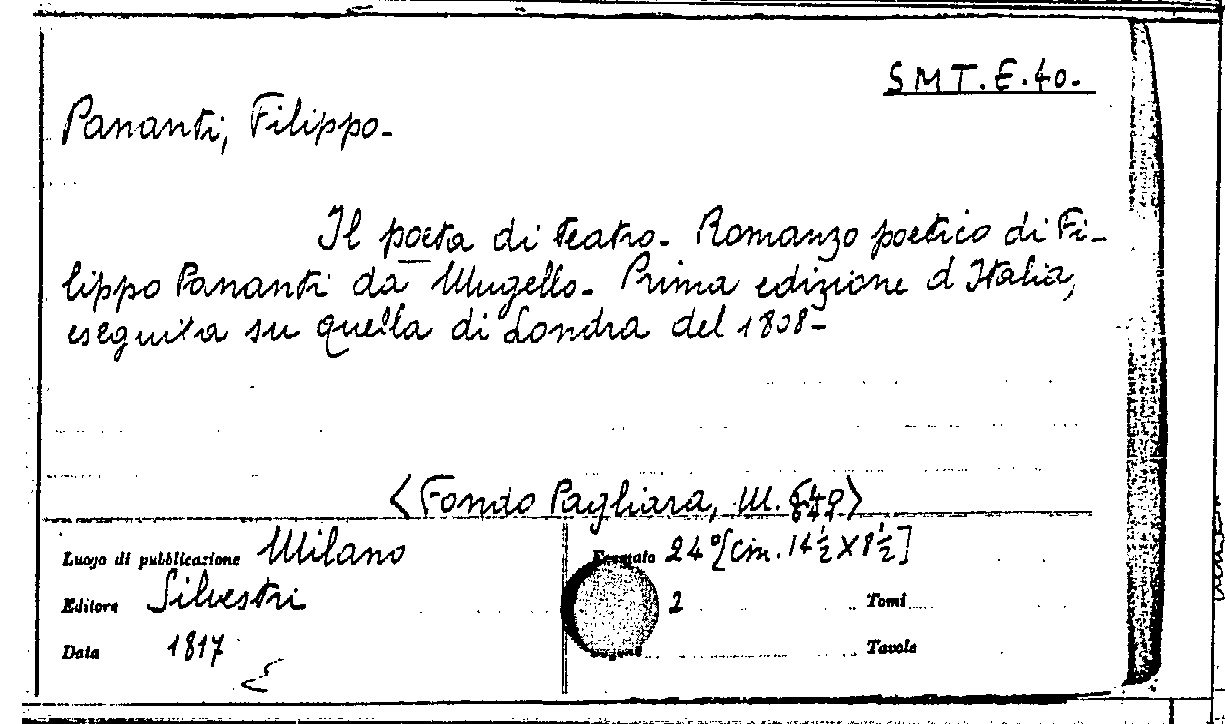 SMT.E.40.
Pananti, Filippo-
Il poeta di teatro- Romanzo poetico di Fi-
lippo Pananti da Mugello- Prima edizione d'Italia,
eseguita su quella di Londra del 1808-
<Fondo Pagliara, M.>
Luogo di pubblicazione Milano
Formato 24°[Cm. 14½ X 8½]
Editore Silvestri
2 Tomi
Data 1817
Tavole